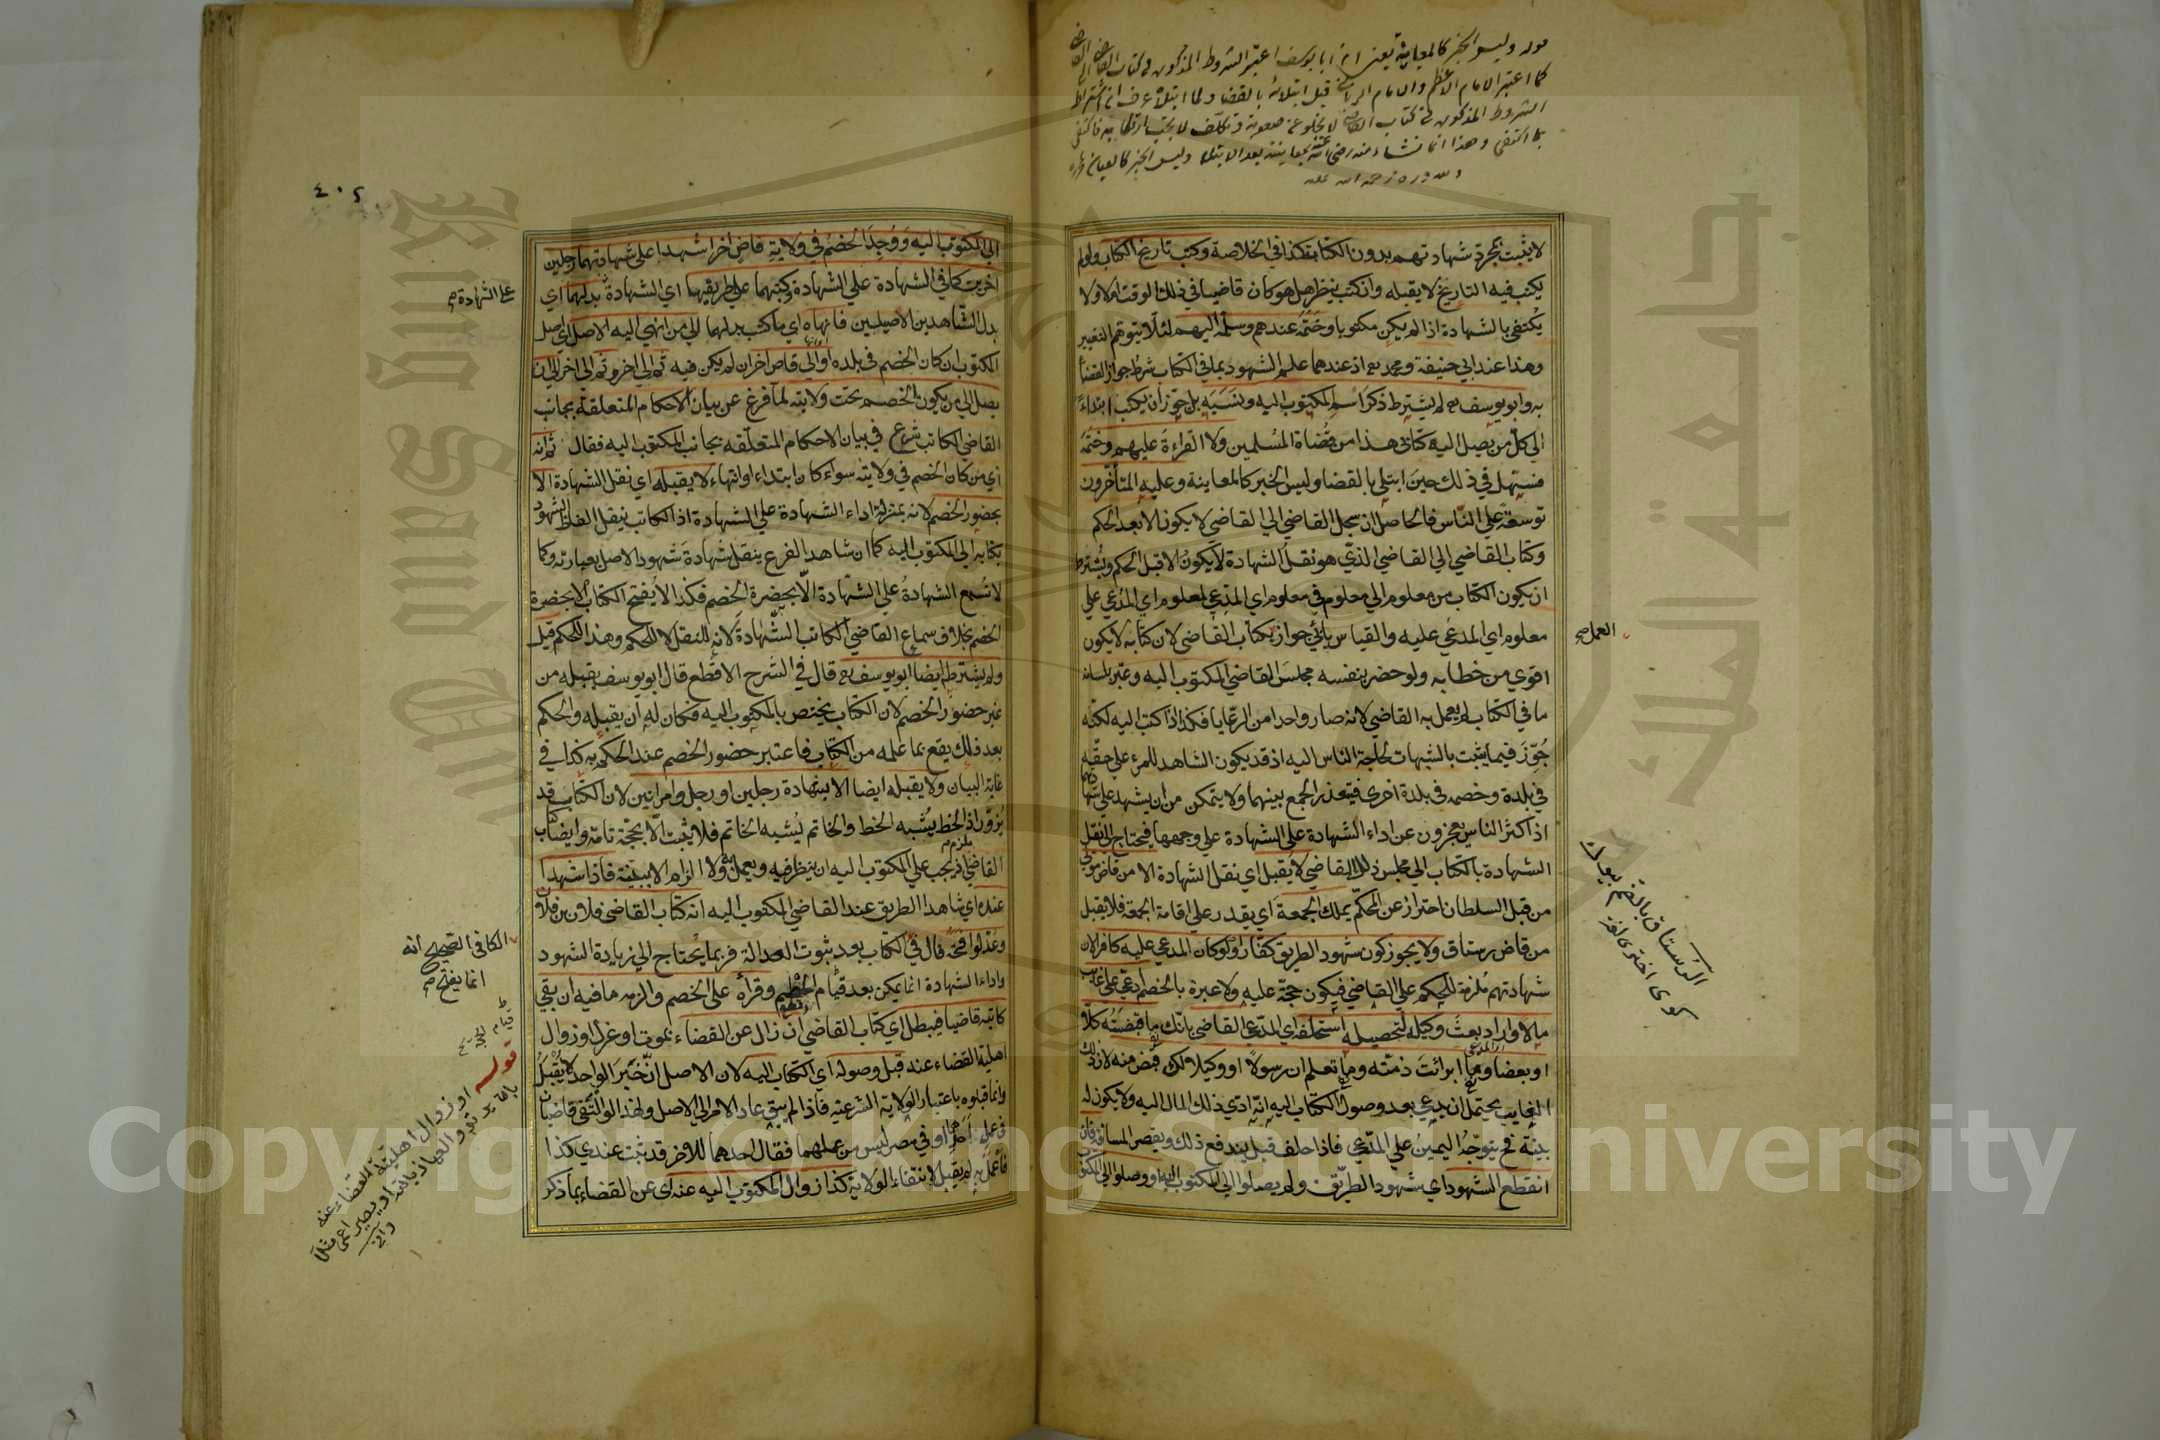 قوله وليس الخبر كالمعاينة يعني ان ابا يوسف اعتبر الشروط المذكورة في كتاب القاضي الى القاضي
كما اعتبر الامام الاعظم والامام الرباني قبل ابتلائه بالقضا ولما ابتلى عرف ان اشتراط
الشروط المذكورة في كتاب القاضي لا يخلو عن صعوبة وتكلف
بما اكتفى وهذا انما نشاء منه رضي الله عنه بمعاينته بعد الابتلا وليس الخبر كالعيان
لا يثبت بمجرد شهادتهم بدون الكتابة كذا في الخلاصة وكتب تاريخ الكتاب ولو لم
يكتب فيه التاريخ لا يقبله وان كتب ينظر هل هو كان قاضيا في ذلك الوقت ام لا ولا
يكتفي بالشهادة اذا لم يكن مكتوبا وختمه عندهم وسلمه اليهم لئلا يتوهم التغيير
وهذا عند ابي حنيفة ومحمد رح اذ عندهما علم الشهود بما في الكتاب شرط جواز القضاء
به وابو يوسف رح لم يشترط ذكر اسم المكتوب اليه ونسبه بل جوز أن يكتب ابتداءً
الي كل من يصل اليه كتابي هذا من قضاة المسلمين ولا القراءة عليهم وختمه
فسهل في ذلك حين ابتلي بالقضا وليس الخبر كالمعاينة وعليه المتأخرون
توسعة علي الناس فالحاصل ان سجل القاضي الي القاضي لا يكون الا بعد الحكم
وكتاب القاضي الي القاضي الذي هو نقل الشهادة لا يكون الا قبل الحكم ويشترط
ان يكون الكتاب من معلوم الي معلوم في معلوم اي المدعي لمعلوم اي المدعي علي
معلوم اي المدعي عليه والقياس يأبي جواز كتاب القاضي لان كتابه لا يكون
العمل صح
اقوي من خطابه ولو حضر بنفسه مجلس القاضي المكتوب اليه وعبر بلسانه
ما في الكتاب لم يعمل به القاضي لانه صار واحدا من الرعايا فكذا اذا كتب اليه لكنه
جوز فيما يثبت بالشبهات لحاجة الناس اليه اذ قد يكون الشاهد للمرء علي حقه
في بلدة وخصمه في بلدة اخري فيتعذر الجمع بينهما ولا يتمكن من ان يشهد علي شهادتهما
اذ اكثر الناس يعجزون عن اداء الشهادة علي الشهادة علي وجهها فيحتاج الي نقل
الشهادة بالكتاب الي مجلس ذلك القاضي لا يقبل اي نقل الشهادة الا من قاض مولي
من قبل السلطان احتراز عن المحكم يملك الجمعة اي يقدر علي اقامة الجمعة فلا يقبل
من قاض رستاق ولا يجوز كون شهود الطريق كفارا ولو كان المدعي عليه كافرا لان
الرستاق بالضم
شهادتهم ملزمة للحكم علي القاضي فيكون حجة عليه ولا عبرة بالخصم ادعي علي غائب
مالا واراد بعث وكيله لتحصيله استحلفه اي المدعي القاضي بانك ما قبضته كلا
او بعضا وما ابرائت ذمته وما تعلم ان رسولا او وكيلا لك قبض منه لان ذلك
الغايب يحتمل ان يدعي بعد وصول الكتاب اليه انه ادي ذلك المال اليه ولا يكون له
بينة فح يتوجه اليمين علي المدعي فاذا حلف قبل يندفع ذلك ويقصر المسافة فان
انقطع الشهود اي شهود الطريق ولم يصلوا الي المكتوب اليه او وصلوا الي المكتوب
٤٠٢
الي المكتوب اليه ووجد الخصم في ولاية قاض اخر اشهدا علي شهادتهما رجلين
علي الشهادة صح
اخرين كما في الشهادة علي الشهادة وكتبهما علي طريقها اي الشهادة بدلهما اي
بدل الشاهدين الاصليين فانهاه اي ما كتب بدلهما الي من انهي اليه الاصل اي اصل
المكتوب ان كان الخصم في بلده او الي قاض اخر ان لم يكن فيه ثم الي اخر وثم الي اخر الي ان
يصل الي من يكون الخصم تحت ولايته لما فرغ عن بيان الاحكام المتعلقة بجانب
القاضي الكاتب شرع في بيان الاحكام المتعلقه بجانب المكتوب اليه فقال ثم انه
اي من كان الخصم في ولايته سواء كان ابتداء او انتهاء لا يقبله اي نقل الشهادة الا
بحضور الخصم لانه بمنزلة اداء الشهادة علي الشهادة اذ الكاتب ينقل الفاظ الشهود
بكتابه الي المكتوب اليه كما ان شاهد الفرع ينقل شهادة شهود الاصل بعبارته وكما
لا تسمع الشهادة علي الشهادة الا بحضرة الخصم فكذا لا يفتح الكتاب الا بحضرة
الخصم بخلاف سماع القاضي الكاتب الشهادة لانه للنقل لا للحكم وهذا للحكم قيل
ولم يشترط ايضا ابو يوسف رح قال في الشرح الاقطع قال ابو يوسف يقبله من
غير حضور الخصم لان الكتاب يختص بالمكتوب اليه فكان له أن يقبله والحكم
بعد ذلك يقع بما علمه من الكتاب فاعتبر حضور الخصم عند الحكم به كذا في
غاية البيان ولا يقبله ايضا الا بشهادة رجلين او رجل وامراتين لان الكتاب قد
يزور اذ الخط يشبه الخط والخاتم يشبه الخاتم فلا يثبت الا بحجة تامة وايضا كتاب
القاضي ملزم يجب علي المكتوب اليه ان ينظر فيه ويعمل به ولا الزام الا ببينة فاذا شهدا
عنده اي شاهدا الطريق عند القاضي المكتوب اليه انه كتاب القاضي فلان بن فلان
وعدلوا فتحه قال في الكتاب بعد ثبوت العدالة فربما يحتاج الي زيادة الشهود
الكافي الصحيح انه
انما يفتح صح
واداء الشهادة انما يمكن بعد قيام الختم وقرأه علي الخصم والزمه ما فيه ان بقي
كاتبه قاضيا فيبطل اي كتاب القاضي ان زال عن القضاء بموت او عزل او زوال
اهلية القضاء عنه قبل وصوله اي الكتاب اليه لان الاصل ان خبر الواحد لا يقبل
وانما قبلوه باعتبار الولاية الشرعية فاذا لم يبق عاد الامر الي الاصل ولهذا لو التقي قاضيان
في عمل احدهما او في مصر ليس من عملهما فقال احدهما للاخر قد ثبت عندي كذا
فاعمل به لم يقبل لانتفاء الولاية كذا زوال المكتوب اليه عنه اي عن القضاء بما ذكر
قوله او زوال اهلية القضاء عنه
والعياذ بالله او يصير اعمى مثلا
Copyright © King Saud University
King Saud University
جامعة الملك سعود
1957